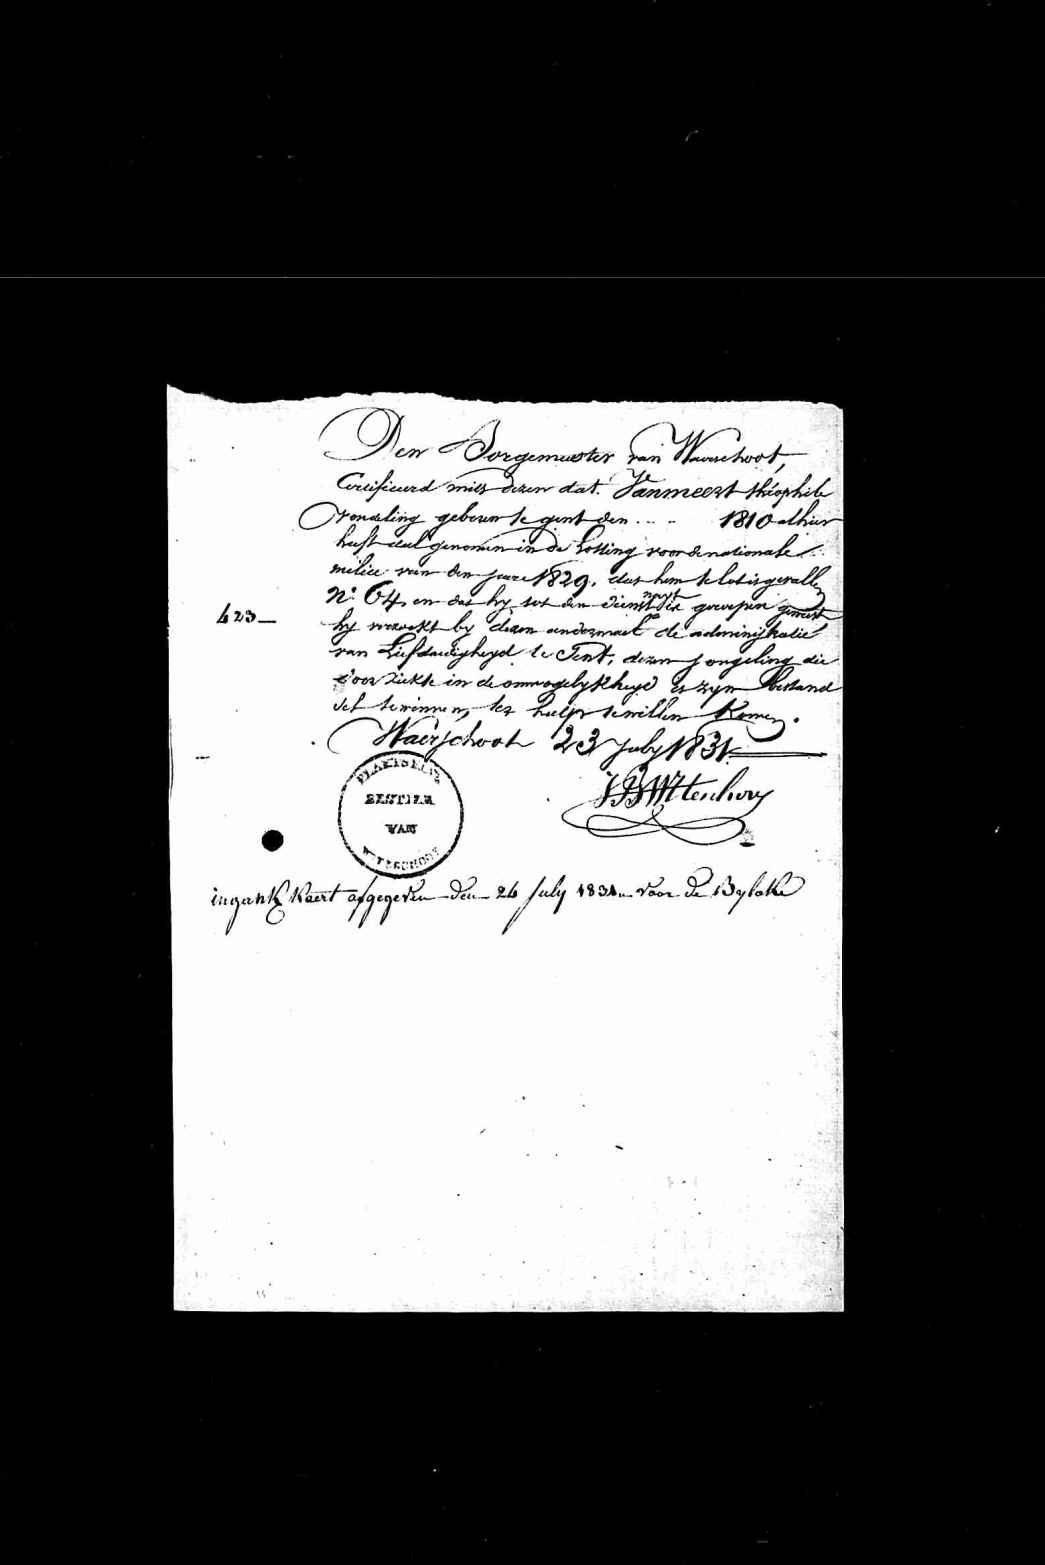 Den Borgemeester van Waerschoot,
Certificeerd mits dezen dat Vanmeert théophile
vondeling geboren te gent den .... 1810 alhier
heeft deel genomen in de Lotting voor de nationale
milice van den jaere 1829, dat hem te lot is gevallen
N.o 64, en dat hy tot den dienst nooyt is geroepen geweest
423 —
hy verzoekt by dezen andermael de administratie
van Liefdaedigheyd te Gent, dezen jongeling die
door ziekte in de onmogelykheyd is zyn bestand
te winnen, ter hulpe te willen komen.
Waerschoot 23 July 1831
PLAETSELYK
BESTIER
VAN
WAERSCHOOT
ingank kaert afgegeven den 26 July 1831 voor de Byloke